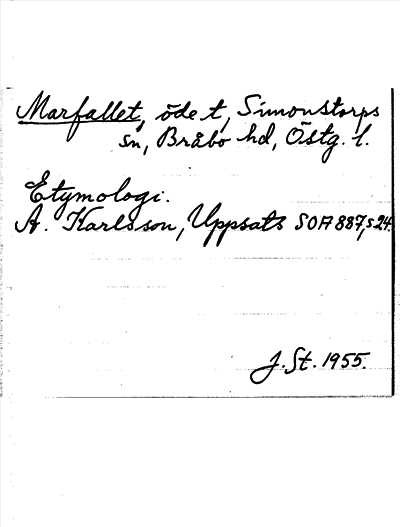 Marfallet, öde t, Simonstorps
sn, Bråbo hd, Östg. l.
Etymologi.
A. Karlsson, Uppsats SOA 887, s 24.
J. St. 1955.